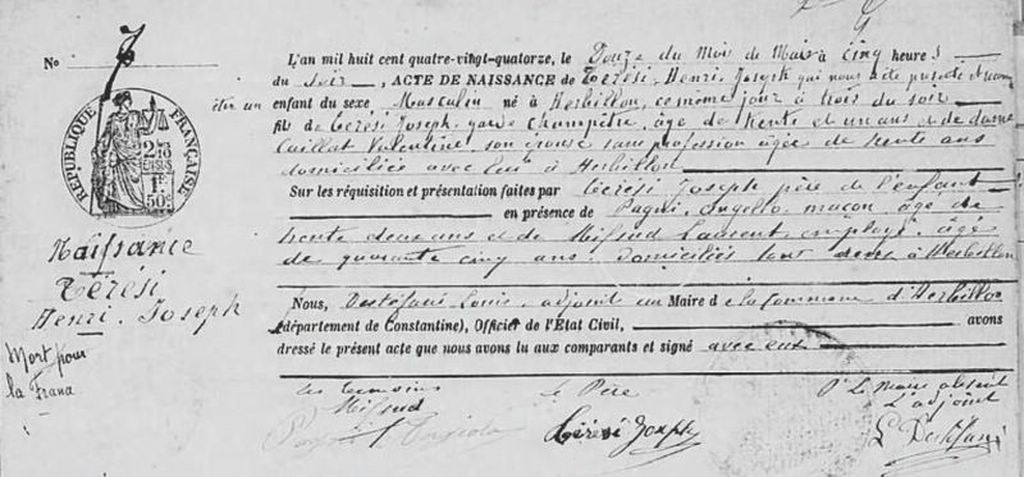 No 7
L'an mil huit cent quatre-vingt-quatorze, le Douze du Mois de Mars à cinq heures
du soir, ACTE DE NAISSANCE de Térési, Henri, Joseph qui nous a été présenté et reconnu
être un enfant du sexe Masculin né à Herbillon, ce même jour à trois du soir
fils de Térési Joseph, garde champêtre, âgé de trente et un ans et de dame
Caillat Valentine, son épouse sans profession âgée de trente ans
domiciliés avec lui à Herbillon
Sur les réquisition et présentation faites par Térési Joseph père de l'enfant
en présence de Pagni, Angello, maçon, âgé de
trente deux ans et de Mifsud Laurent employé, âgé
de quarante cinq ans. Domiciliés tous deux à Herbillon
Nous, Destéfani Louis, adjoint au Maire de la Commune d'Herbillon
(département de Constantine), Officier de l'Etat Civil, avons
dressé le présent acte que nous avons lu aux comparants et signé avec eux
REPUBLIQUE FRANÇAISE
1F.
50c
Naissance
Térési
Henri, Joseph
Mort pour
la France
les témoins
Mifsud
Pagni Angiolo
le Père
Térési Joseph
Pr Le Maire absent
L'adjoint
L Destéfani